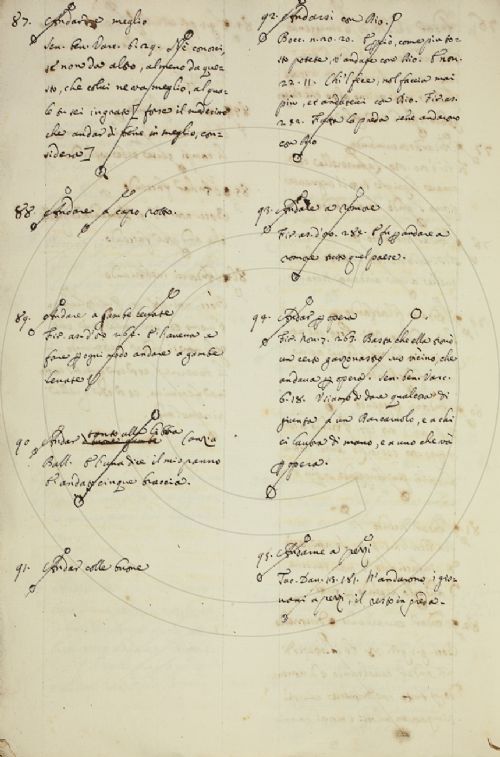 87. Andarne meglio
Sen. ben. Varc. 6. 29. conosci,
se non da altro, almeno da que-
sto, che colui ne va meglio, al qua-
le tu sei ingrato] forse il medesimo
che andar di bene in meglio, con-
sidera]
88 Andare a capo rotto.
89. Andare a gambe levate
fare ogni modo andare a gambe
levate
90. Andar
Ball. il mio panno
cinque braccia.
91. Andar colle buone
92. Andarsi con Dio.
Bocc. n. 20. 20. come piu to-
sto potete, v'andate con Dio. E non.
22. 11. Chi'l fece, nol faccia mai
piu, et andatevi con Dio. Fir. as.
la preda se ne andarono
con Dio
93. Andare a romore
Fir. as. 285. E fu andare a
romore tutto quel paese.
94. Andar p opera
Fir. nov. 7. 263. Basta che ella
un certo garzonasso suo vicino, che
andava p opere. Sen. ben. Varc.
6. 18. dar qualcosa di
giunta a un Barcaruolo, e a chi
ci lavora di mano, e a uno che va
p opera.
95. Andarne a pezzi
Tac. Dav. 13. 181. N'andarono i gio-
vani a pezzi, il resto in preda.